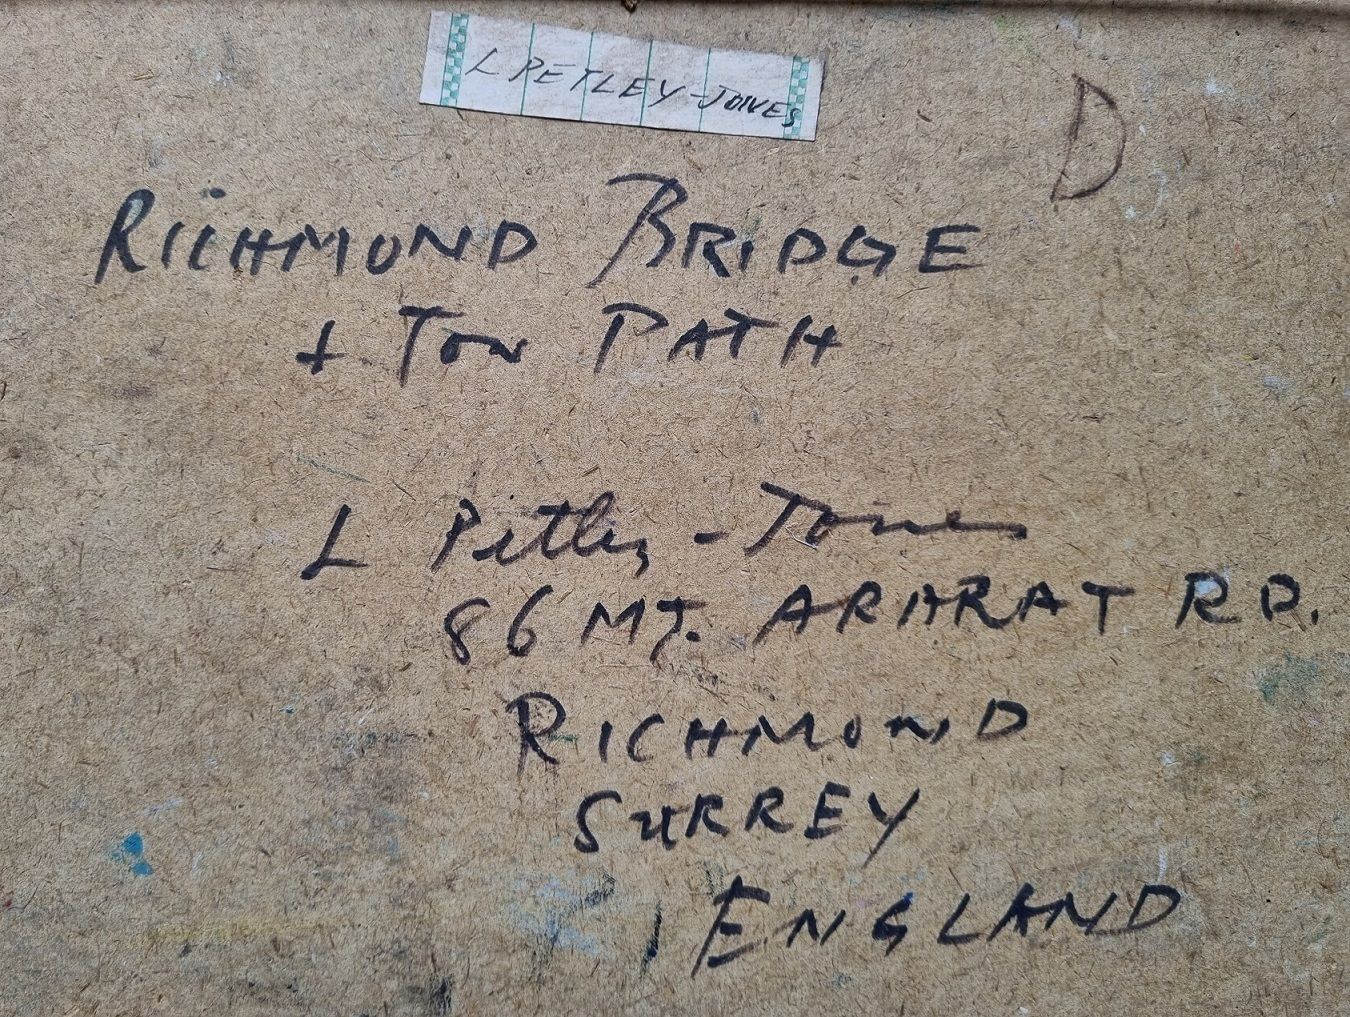 L PETLEY-JONES
D
RICHMOND BRIDGE
+ TOW PATH
L Petley-Jones
86 MT. ARARAT RD.
RICHMOND
SURREY
ENGLAND